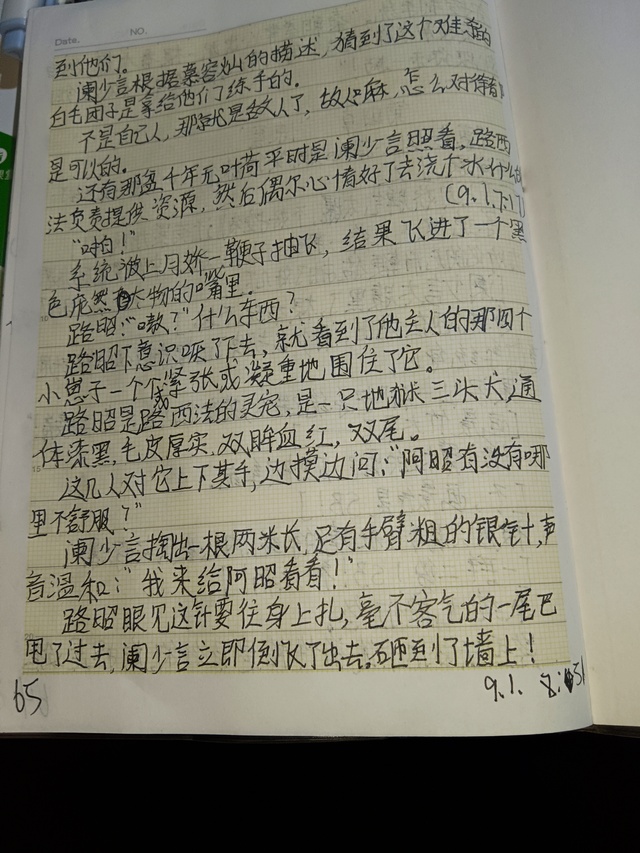 Date.
NO.
到他们。
阑少言根据慕容灿的描述，猜到了这个难看的
白毛团子是拿给他们练手的。
不是自己人，那就是敌人了，敌人嘛，怎么对待都
是可以的。
还有那盆千年元叶荷平时是阑少言照看，路西
法负责提供资源，然后偶尔心情好了去浇个水什么的
(9.1.下17)
"啪！"
系统被上月娇一鞭子抽飞，结果飞进了一个黑
色庞然大物的嘴里。
路昭："嗷？"什么东西？
路昭下意识咽了下去，就看到了他主人的那四个
小崽子一个个紧张或凝重地围住了它。
路昭是路西法的灵宠，是一只地狱三头犬，通
体漆黑，毛皮厚实，双眸血红，双尾。
这几人对它上下其手，边摸边问："阿昭有没有哪
里不舒服？"
阑少言掏出一根两米长，足有手臂粗的银针，声
音温和："我来给阿昭看看！"
路昭眼见这针要往身上扎，毫不客气的一尾巴
甩了过去，阑少言立即倒飞了出去。砸到了墙上！
65
9.1. 8:51